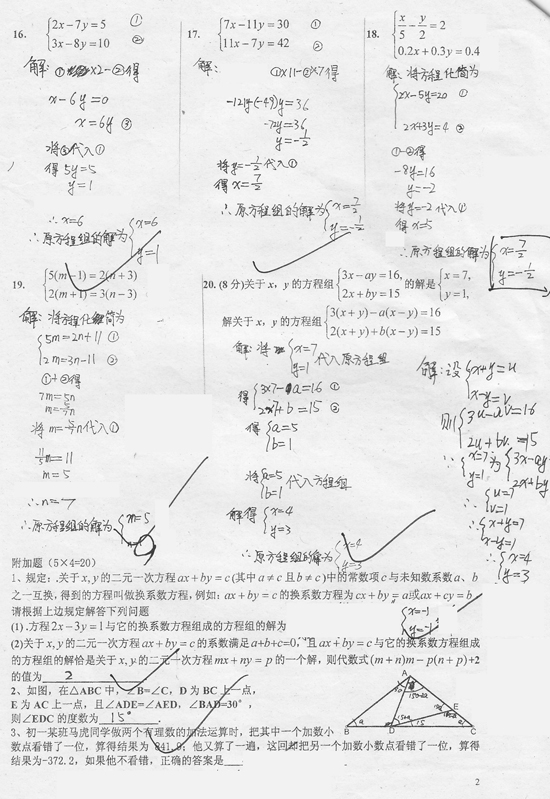 16. {2x-7y=5 ①
3x-8y=10 ②
解: ①×2-②得
x-6y=0
x=6y ③
将③代入①
得 5y=5
y=1
∴x=6
∴原方程组的解为{x=6
y=1
17. {7x-11y=30 ①
11x-7y=42 ②
解:
①×11-②×7得
-121y-(-49)y=36
-72y=36
y=-1/2
将y=-1/2代入①
得x=7/2
∴原方程组的解为{x=7/2
y=-1/2
18. {x/5-y/2=2
0.2x+0.3y=0.4
解:将方程化简为
{2x-5y=20 ①
2x+3y=4 ②
①-②得
-8y=16
y=-2
将y=-2代入①
得x=5
∴原方程组的解为{x=7/2
y=-1/2
19. {5(m-1)=2(n+3)
2(m+1)=3(n-3)
解:将方程化简为
{5m=2n+11 ①
2m=3n-11 ②
①+②得
7m=5n
m=5/7n
将m=5/7n代入①
m=5
∴n=7
∴原方程组的解为{m=5
20. (8分)关于x，y的方程组{3x-ay=16,
2x+by=15
的解是{x=7,
y=1,
解关于x，y的方程组{3(x+y)-a(x-y)=16
2(x+y)+b(x-y)=15
解:将{x=7
y=1 代入原方程组
得{3×7-a=16 ①
2×7+b=15 ②
得{a=5
b=1
将{a=5
b=1 代入方程组
解得{x=4
y=3
∴原方程组的解为{x=4
y=3
解:设{x+y=u
x-y=v
则{3u-av=16
2u+bv=15
∵{x=7
y=1 为{3x-ay
2x+by
∴{u=7
v=1
∴{x+y=7
x-y=1
∴{x=4
y=3
附加题（5×4=20）
1、规定:关于x,y的二元一次方程ax+by=c(其中a≠c且b≠c)中的常数项c与未知数系数a、b
之一互换,得到的方程叫做换系数方程,例如: ax+by=c的换系数方程为cx+by=a或ax+cy=b
请根据上边规定解答下列问题
(1).方程2x-3y=1与它的换系数方程组成的方程组的解为
{x=-1
y=-1
(2)关于x,y的二元一次方程ax+by=c的系数满足a+b+c=0,且ax+by=c与它的换系数方程组成
的方程组的解恰是关于x,y的二元一次方程mx+ny=p的一个解,则代数式(m+n)m-p(n+p)+2
的值为 2
2、如图，在△ABC中，∠B=∠C，D为BC上一点，
E为AC上一点，且∠ADE=∠AED，∠BAD=30°，
则∠EDC的度数为 15°.
A
E
B
D
C
3、初一某班马虎同学做两个有理数的加法运算时，把其中一个加数小
数点看错了一位，算得结果为 841.9；他又算了一遍，这回却把另一个加数小数点看错了一位，算得
结果为-372.2，如果他不看错，正确的答案是
2